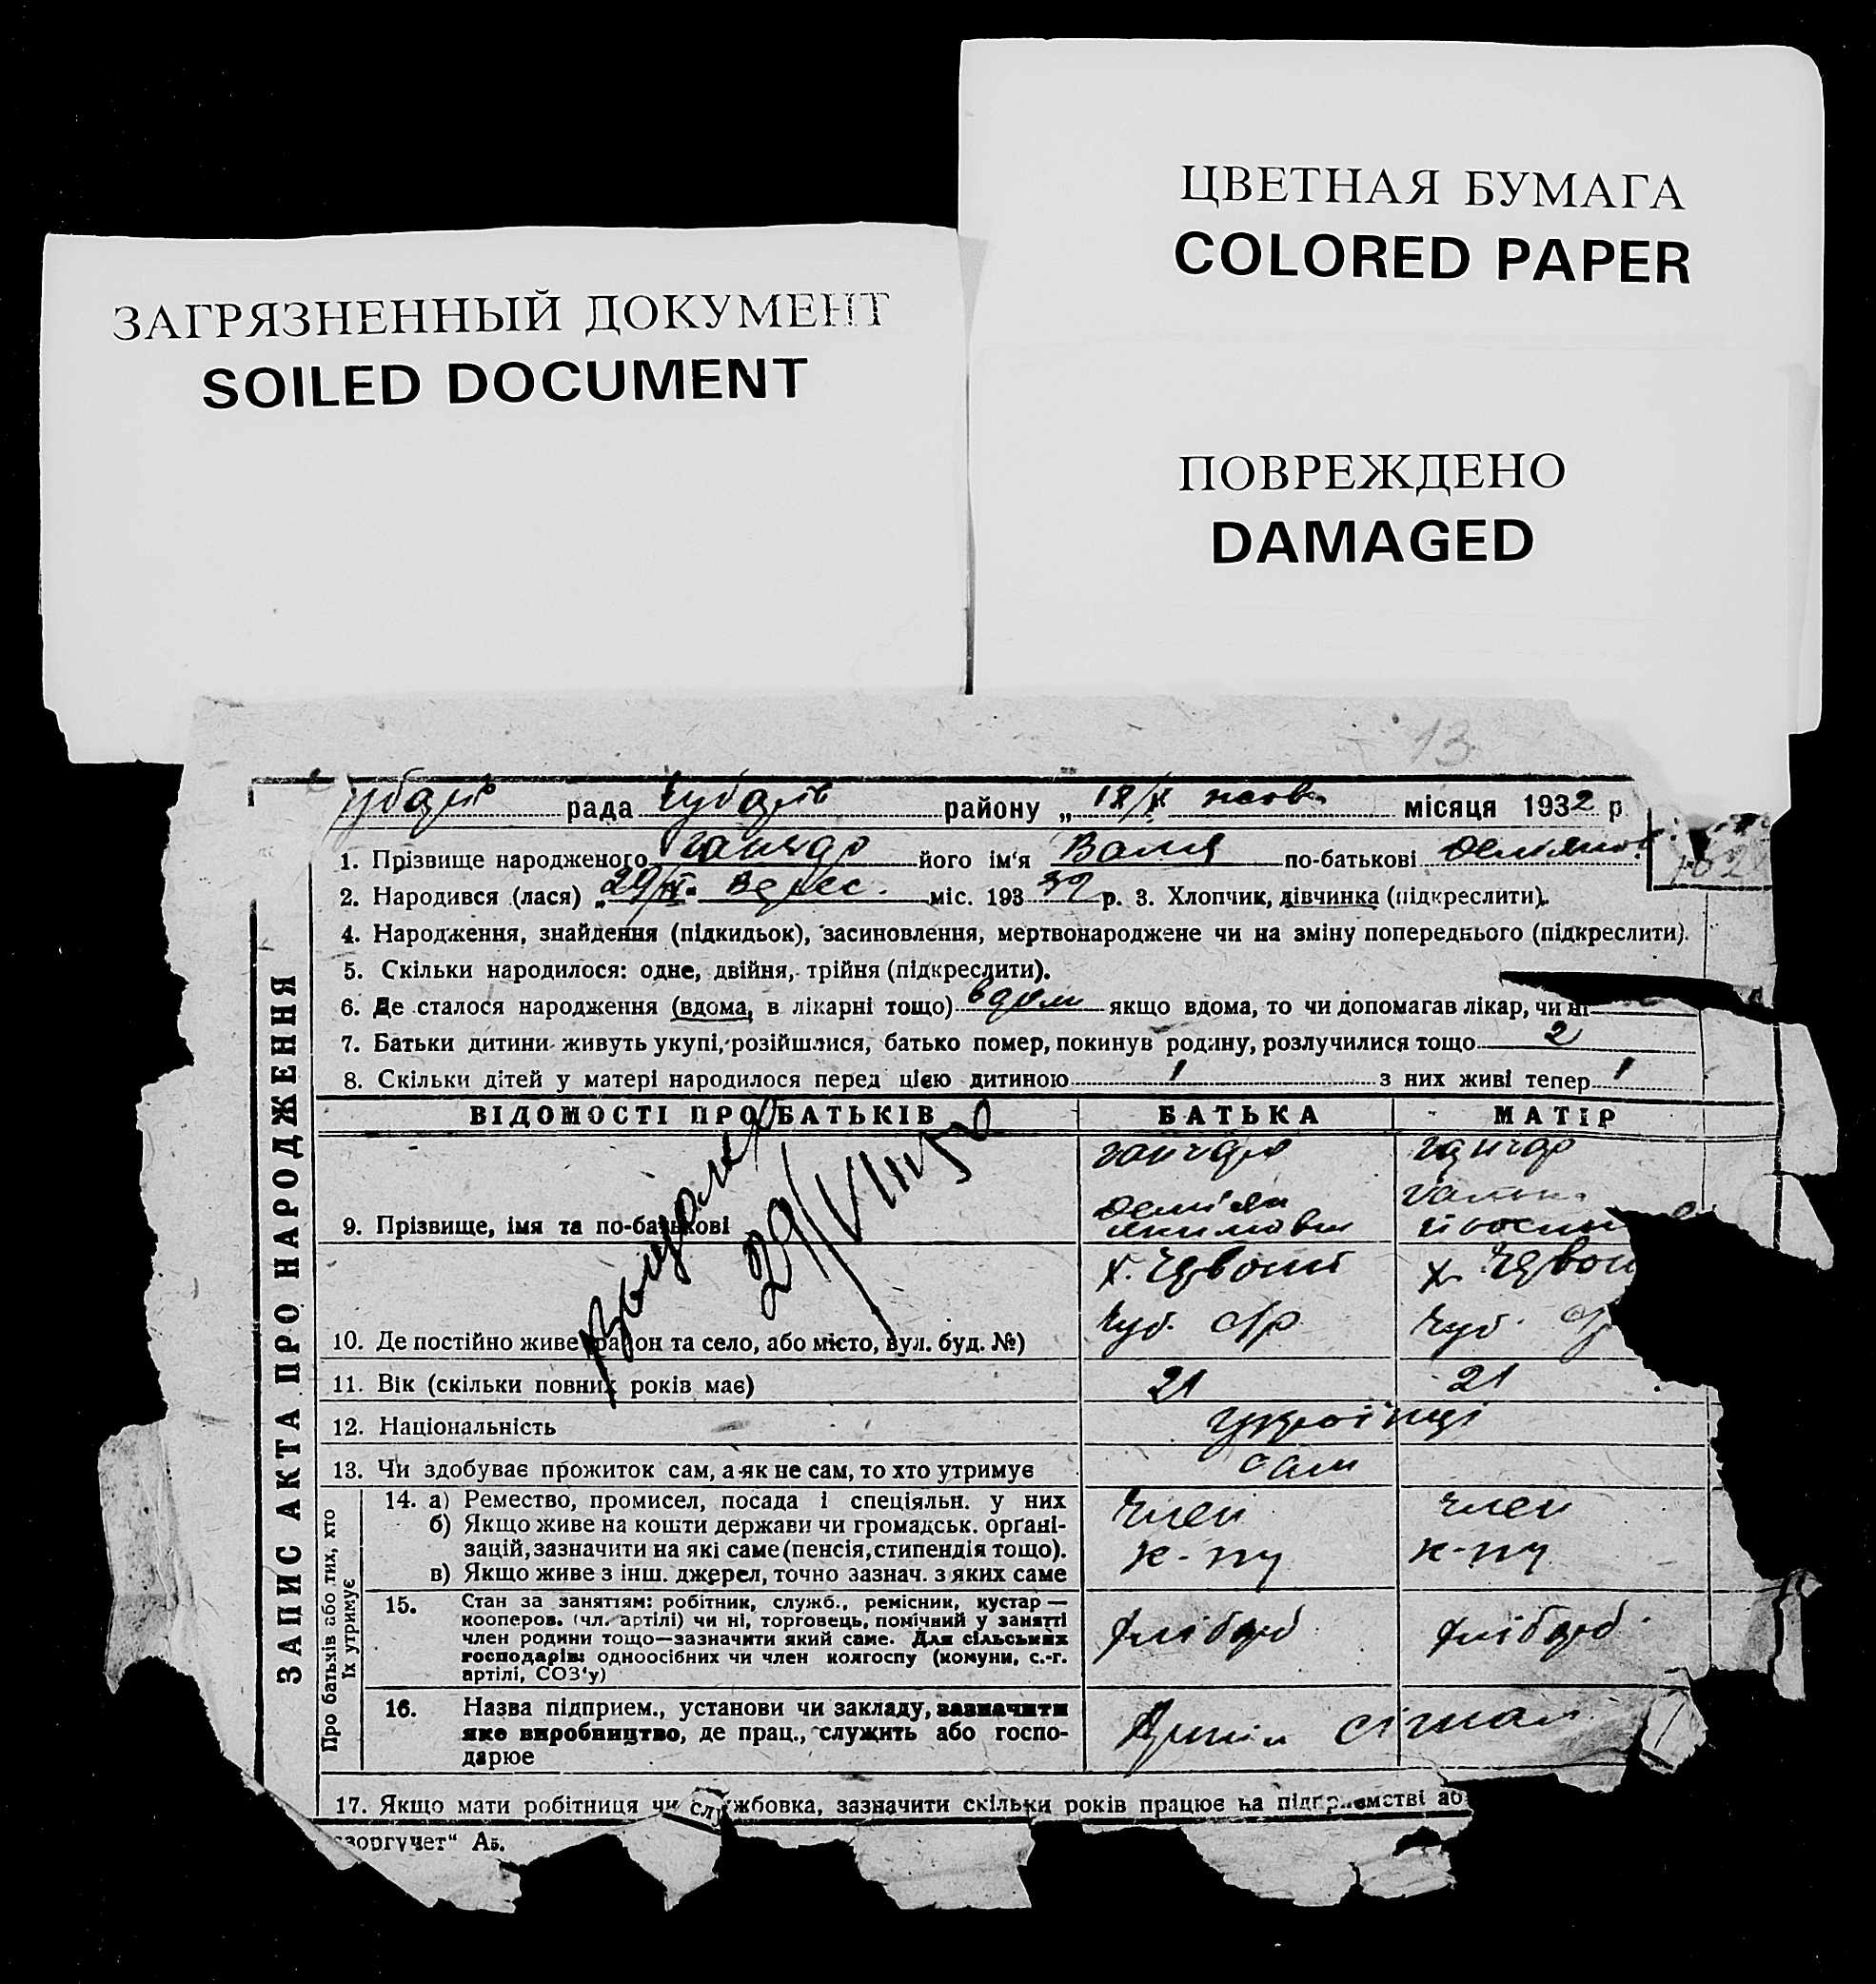 ЦВЕТНАЯ БУМАГА
COLORED PAPER
ЗАГРЯЗНЕННЫЙ ДОКУМЕНТ
SOILED DOCUMENT
ПОВРЕЖДЕНО
DAMAGED
13
рада району „18/X жовт. місяця 1932 р.
1. Прізвище народженого Ганчар його ім‘я Валя по-батькові
2. Народився (лася) „29/IX. верес. міс. 193 32 р. 3. Хлопчик, дівчинка (підкреслити).
4. Народження, знайдення (підкидьок), засиновлення, мертвонароджене чи на зміну попереднього (підкреслити).
5. Скільки народилося: одне, двійня, трійня (підкреслити).
6. Де сталося народження (вдома, в лікарні тощо) вдома якщо вдома, то чи допомагав лікар, чи ні
7. Батьки дитини живуть укупі, розійшлися, батько помер, покинув родину, розлучилися тощо 2
8. Скільки дітей у матері народилося перед цією дитиною 1 з них живі тепер 1
ЗАПИС АКТА ПРО НАРОДЖЕННЯ
ВІДОМОСТІ ПРО БАТЬКІВ БАТЬКА МАТІР
Ганчар Ганчар
29/VIII 50
9. Прізвище, імя та по-батькові
х. Червоний х. Червон
10. Де постійно живе (район та село, або місто, вул. буд. №) Чуб. Чуб.
11. Вік (скільки повних років має) 21 21
12. Національність українці
13. Чи здобуває прожиток сам, а як не сам, то хто утримує сам
Про батьків або тих, хто їх утримує
14. а) Ремество, промисел, посада і спеціяльн. у них член член
б) Якщо живе на кошти держави чи громадськ. орґані-
зацій, зазначити на які саме (пенсія, стипендія тощо). к-пу к-пу
в) Якщо живе з інш. джерел, точно зазнач. з яких саме
15. Стан за заняттям: робітник, служб., ремісник, кустар —
кооперов. (чл. артілі) чи ні, торговець, помічний у занятті
член родини тощо—зазначити який саме. Для сільських
господарів: одноосібних чи член колгоспу (комуни, с.-г.
артілі, СОЗ‘у)
хлібороб хлібороб
16. Назва підприєм., установи чи закладу, зазначити
яке виробництво, де прац., служить або госпо-
дарює
Артіль
17. Якщо мати робітниця чи службовка, зазначити скільки років працює на підприємстві аб